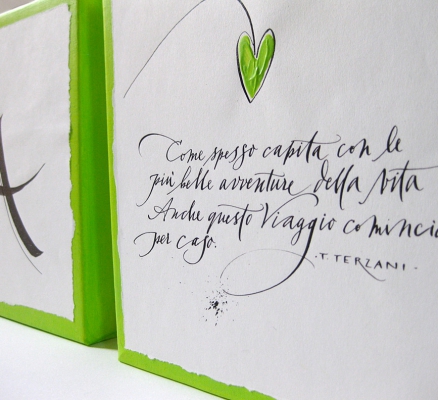 Come spesso capita con le
più belle avventure della vita
Anche questo Viaggio comincia
per caso.
· T. TERZANI ·